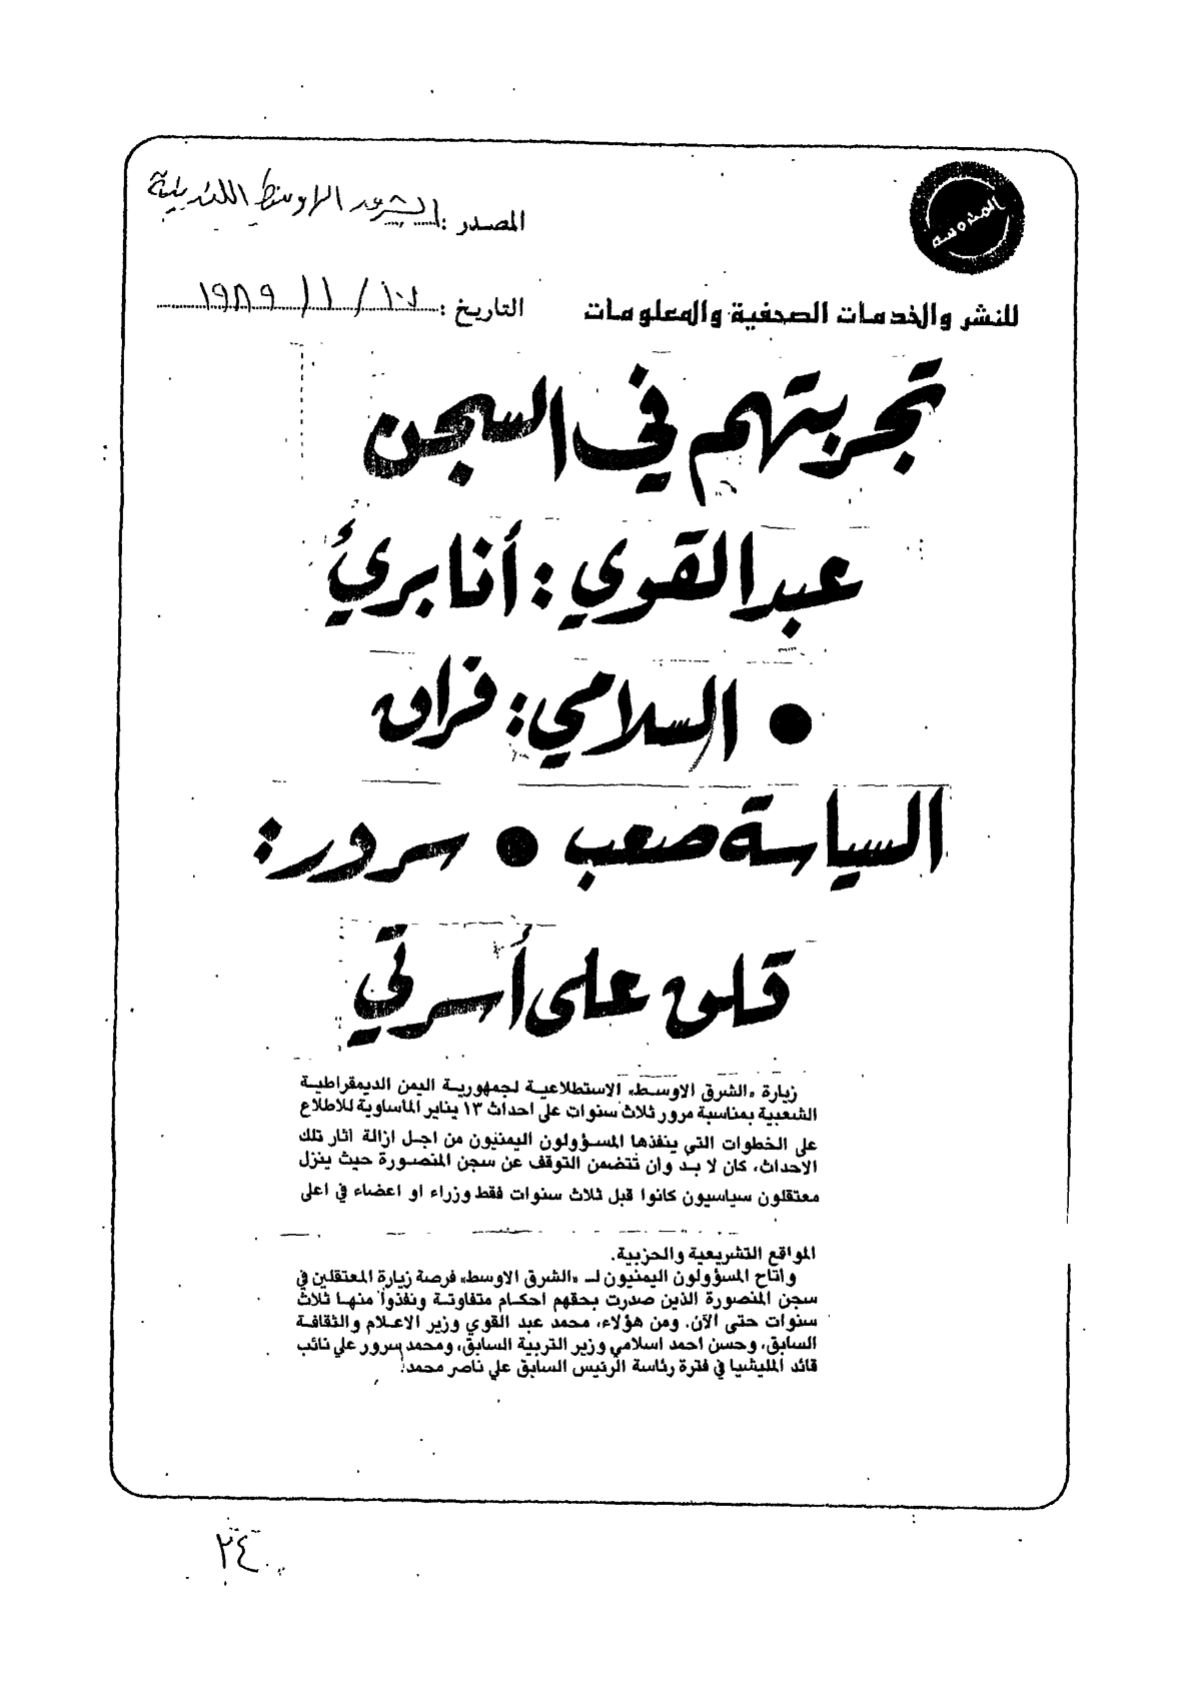 المحروسة
المصدر : الشرق الاوسط اللندنية
للنشر والخدمات الصحفية والمعلومات
التاريخ : / ١ / ١٩٨٩
تجربتهم في السجن
عبدالقوي : أنا برئ
● السلامي : فراق
السياسة صعب ● سرور :
قلق على أسرتي
زيارة «الشرق الاوسط» الاستطلاعية لجمهورية اليمن الديمقراطية
الشعبية بمناسبة مرور ثلاث سنوات على احداث ١٣ يناير المأساوية للاطلاع
على الخطوات التي ينفذها المسؤولون اليمنيون من اجل ازالة آثار تلك
الاحداث، كان لا بد وان تتضمن التوقف عن سجن المنصورة حيث ينزل
معتقلون سياسيون كانوا قبل ثلاث سنوات فقط وزراء او اعضاء في اعلى
المواقع التشريعية والحزبية.
واتاح المسؤولون اليمنيون لـ «الشرق الاوسط» فرصة زيارة المعتقلين في
سجن المنصورة الذين صدرت بحقهم احكام متفاوتة ونفذوا منها ثلاث
سنوات حتى الآن. ومن هؤلاء، محمد عبد القوي وزير الاعلام والثقافة
السابق، وحسن احمد اسلامي وزير التربية السابق، ومحمد سرور علي نائب
قائد المليشيا في فترة رئاسة الرئيس السابق علي ناصر محمد.
٢٤